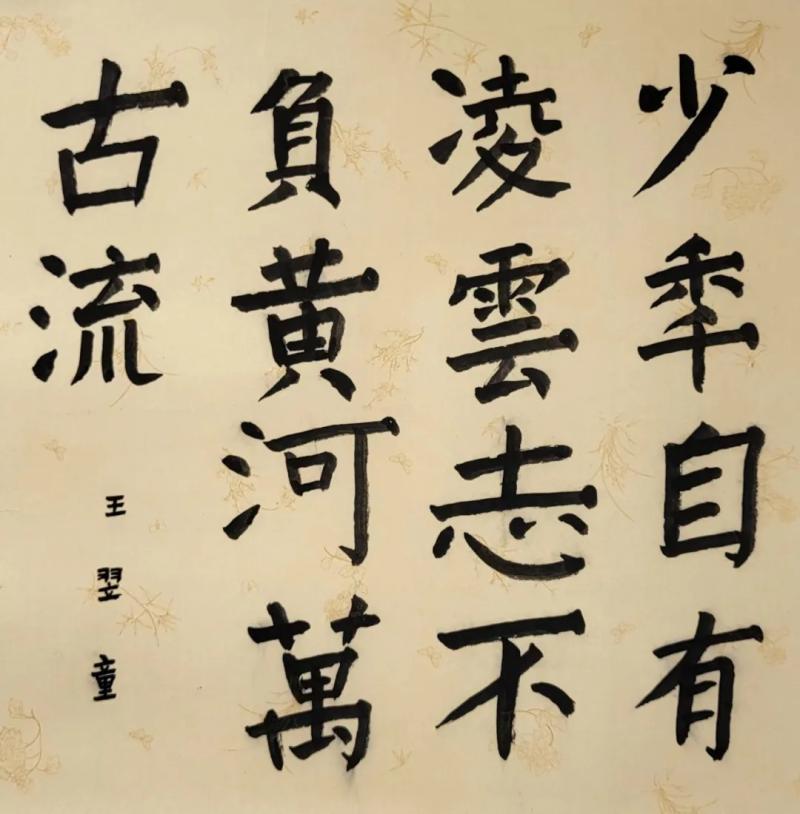 少年自有
凌雲志不
負黄河萬
古流
王翌童